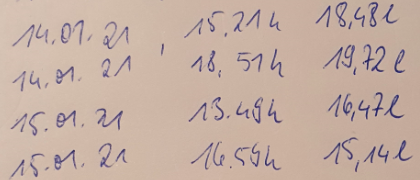 14.01.21, 15.21h 18,48l
14.01.21 18,51h 19,72l
15.01.21 13.49h 16,47l
15.01.21 16.59h 15,14l